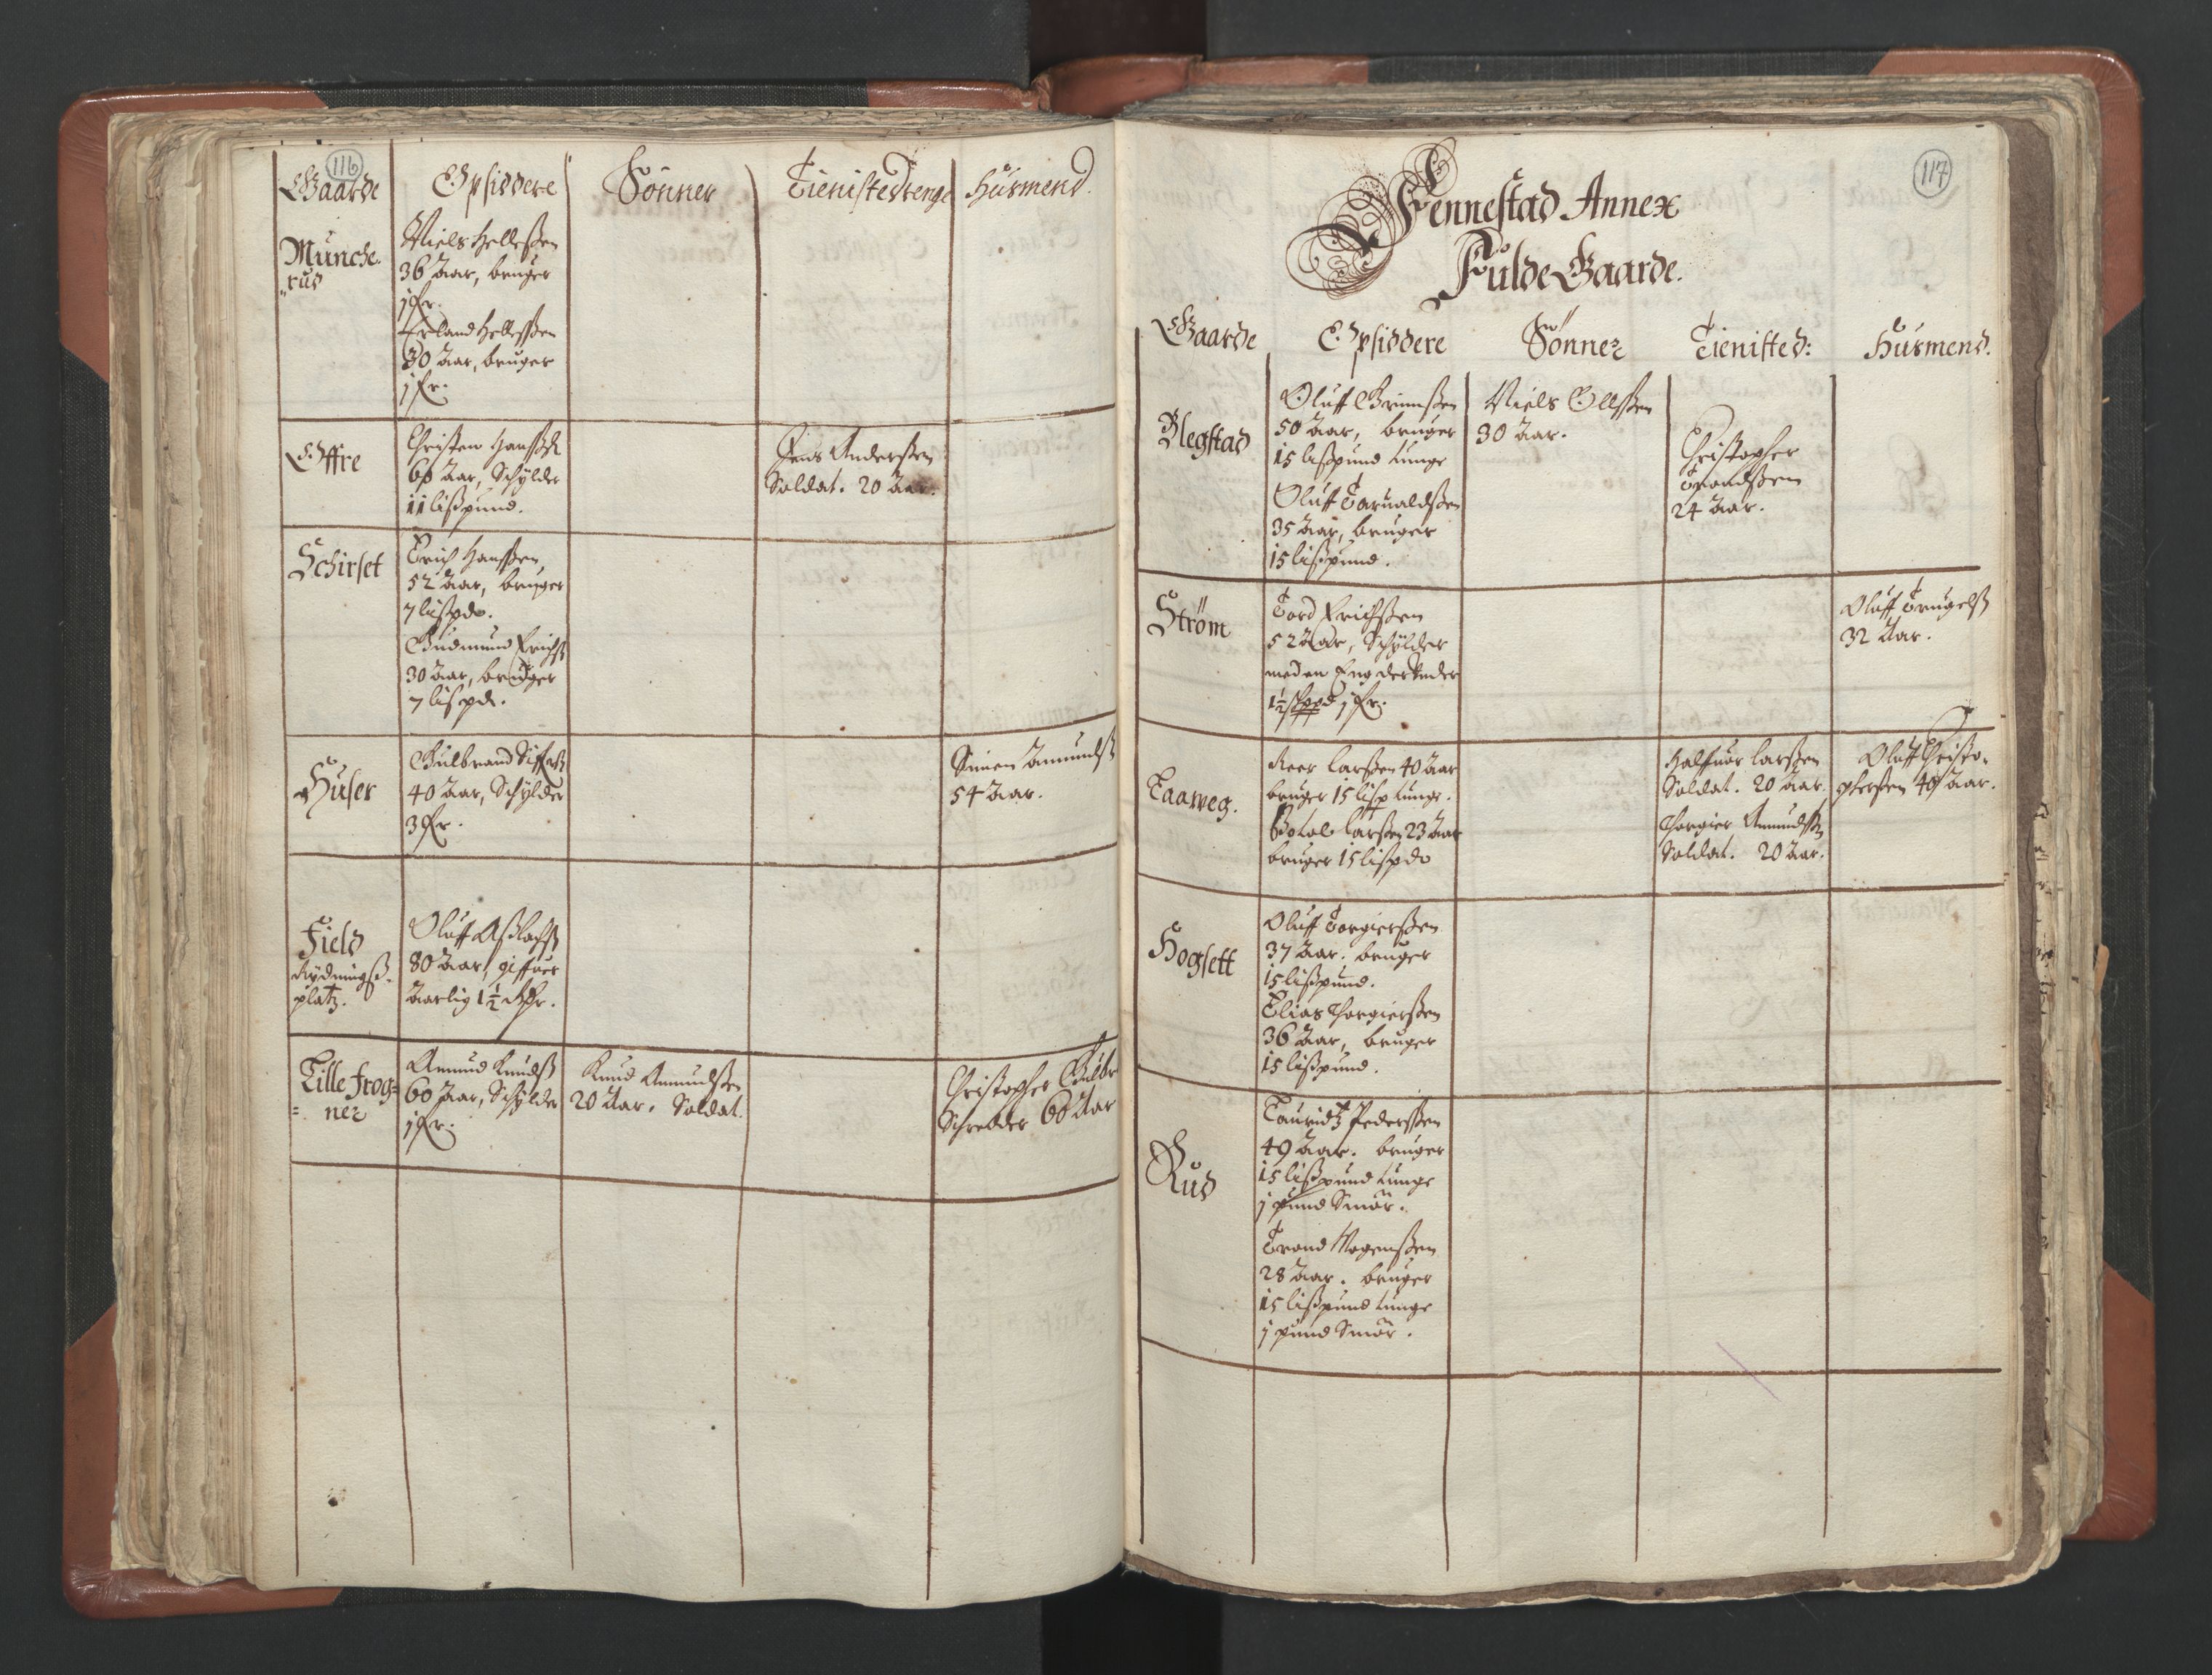 116
Gaarde Opsiddere Sönner Tienistedrenge Husmend.
Munche-
rud
Niels Hellessen
36 Aar, bruger
1 fr.
Erland Hellessen
30 Aar, bruger
1 fr.
Offre
Christen Hanss.
60 Aar, Schylder
11 lißpund.
Jens Anderssen
Soldat. 20 Aar.
Schirset
Erich Hanssen,
52 Aar, bruger
7 lißpd.
Gudmund Erichss.
30 Aar, bruger
7 lispd.
Huser
Gulbrand
40 Aar, Schylder
3 fr.
Simen Amundss.
54 Aar.
Field
Rydningß-
platz.
Oluff Aßlachss.
80 Aar, giffuer
Aarlig 1½ Rdr.
Lille Frog=
=ner
Amund Knudss.
60 Aar, Schylder
1 fr.
Knud Amundssen
20 Aar. Soldat.
Christopher Gulbr
Schredder 60 Aar
117
Fennestad Annex
Fulde Gaarde.
Gaarde Opsiddere Sönner Tienisted: Husmend.
Blegstad
Oluff Grimssen
50 Aar, bruger
15 lißpund tunge
Oluff Taraldssen
35 Aar, bruger
15 lißpund.
Niels Olssen
30 Aar.
Christopher
Trondssen
24 Aar.
Ström
Tord Erichssen
52 Aar, Schylder
med en Eng der under
1½ schpd 1 fr.
Oluff Trugelss.
32 Aar.
Laaweg.
Peer Larssen 40 Aar
bruger 15 lisp tunge.
Larssen 23 Aar
bruger 15 lispd
Halffuor Larssen
Soldat. 20 Aar.
Thorgier Amundss.
Soldat. 20 Aar.
Oluff Christo-
pherssen 40 Aar.
Hogsett
Oluff Torgierssen
37 Aar. bruger
15 lißpund.
Elias Thorgierssen
36 Aar, bruger
15 lißpund.
Rud
Lauridtz Pederssen
49 Aar. bruger
15 lißpund tunge
1 pund Smör.
Trond Mogenssen
28 Aar. bruger
15 lißpund tunge
1 pund Smör.